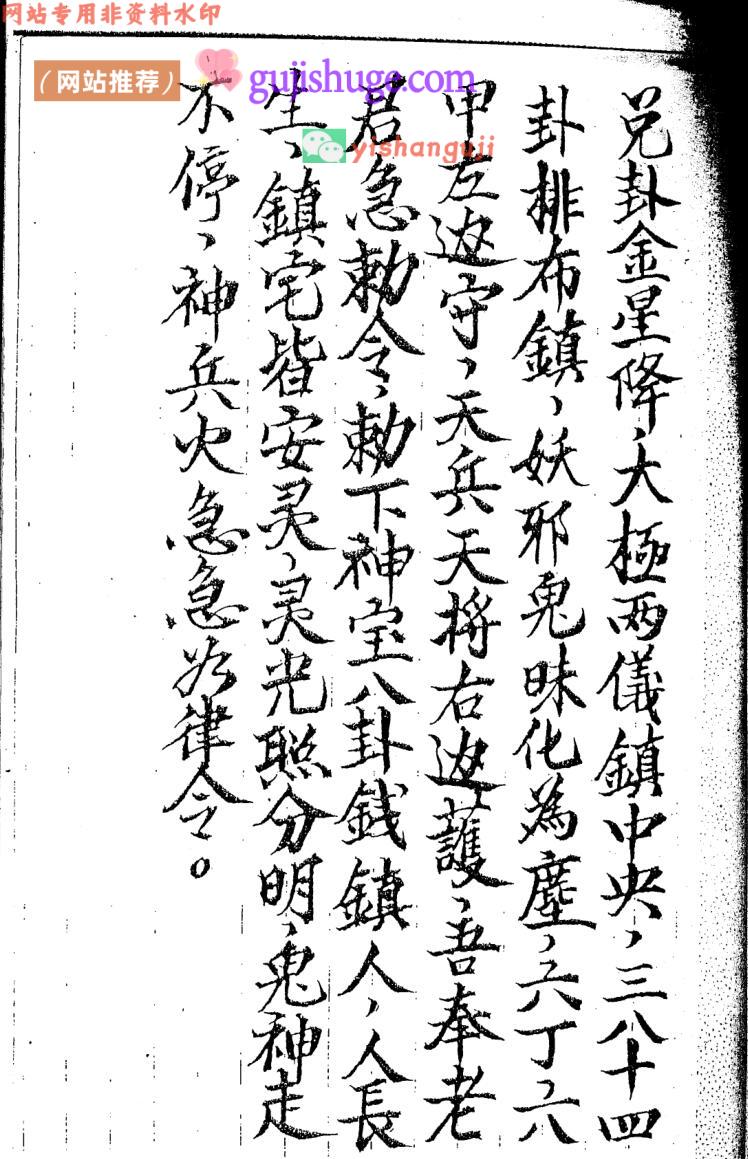 网站专用非资料水印
（网站推荐）
gujishuge.com
yishanguji
兑卦金星降、大極两儀鎮中央、三八十四
卦排布鎮、妖邪鬼昧化為塵、六丁六
甲左边守、天兵天将右边護、吾奉老
君急勅令、勅下神宝八卦銭鎮人、人長
生、鎮宅皆安灵、灵光照分明、鬼神走
不停、神兵火急急如律令。